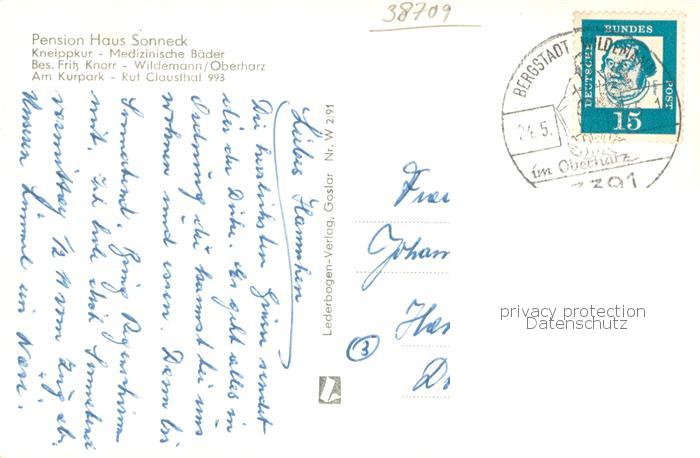 38709
Pension Haus Sonneck
Kneippkur - Medizinische Bäder
Bes. Fritz Knorr - Wildemann/Oberharz
Am Kurpark - Ruf Clausthal 993
Liebes Hannchen
Die herzlichsten Grüsse sendet
dir die Dicke. Es geht alles in
Ordnung du kannst bei uns
wohnen und essen. Denn bis
Sonnabend. Bring Regenschirm
mit. Ich hole dich Sonnabend
vormittag ½ 11 vom Zug ab.
Lederbogen-Verlag, Goslar Nr. W 2/91
BERGSTADT WILDEMANN
24.5.
im Oberharz
3391
DEUTSCHE BUNDES POST
15
Johan
3
privacy protection
Datenschutz